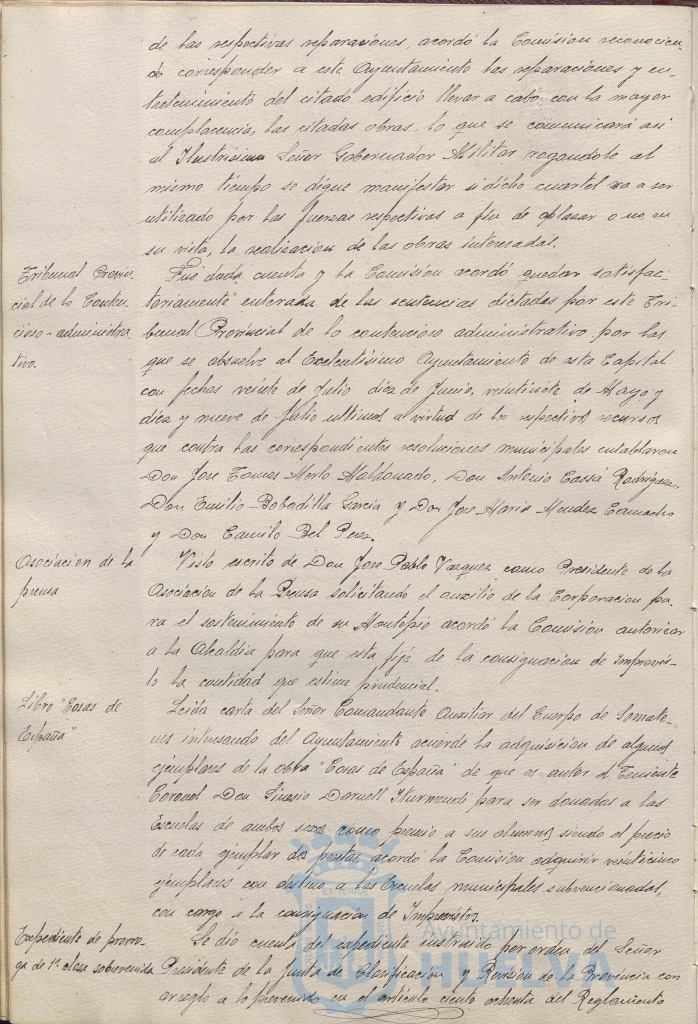 de las respectivas reparaciones, acordó la Comision reconocien-
do corresponder a este Ayuntamiento las reparaciones y en-
tretenimiento del citado edificio llevar a cabo con la mayor
complacencia, las citadas obras, lo que se comunicará asi
al Ilustrisimo Señor Gobernador Militar rogandole al
mismo tiempo se digne manifestar si dicho cuartel va a ser
utilizado por las fuerzas respectivas a fin de aplazar o no, en
su vista, la realizacion de las obras interesadas.
Tribunal Provin-
cial de lo Conten-
cioso-administra-
tivo.
Fué dada cuenta y la Comision acordó quedar satisfac-
toriamente enterada de las sentencias dictadas por este Tri-
bunal Provincial de lo contencioso administrativo por las
que se absuelve al Excelentisimo Ayuntamiento de esta Capital
con fechas veinte de Julio, diez de Junio, veintisiete de Mayo y
diez y nueve de Julio ultimos, a virtud de los respectivos recursos
que contra las correspondientes resoluciones municipales entablaron
Don Jose Tomas Merlo Maldonado, Don Antonio Rodriguez,
Don Emilio Bobadilla Garcia y Don Jose Maria Mendez Camacho
y Don Camilo Bel Perez.
Asociacion de la
prensa
Visto escrito de Don Jose Pablo Vazquez como Presidente de la
Asociacion de la Prensa solicitando el auxilio de la Corporacion pa-
ra el sostenimiento de su Montepio acordó la Comision autorizar
a la Alcaldia para que esta fije de la consignacion de Imprevis-
to la cantidad que estime prudencial.
Libro "Cosas de
España"
Leida carta del Señor Comandante Auxiliar del Cuerpo de Somate-
nes interesando del Ayuntamiento acuerde la adquisicion de algunos
ejemplares de la obra "Cosas de España" de que es autor el Teniente
Coronel Don Darnell Iturmendi para ser donados a las
Escuelas de ambos sexos como premio a sus alumnos, siendo el precio
de cada ejemplar dos pesetas, acordó la Comision adquirir veinticinco
ejemplares con destino a las Escuelas municipales subvencionadas,
con cargo a la consignacion de Imprevistos.
Expediente de prorro-
ga de 1ª clase sobrevenida
Se dió cuenta del expediente instruido por orden del Señor
Presidente de la Junta de Clasificacion y Revision de la Provincia con
arreglo a lo prevenido en el articulo ciento ochenta del Reglamento
Ayuntamiento de
HUELVA